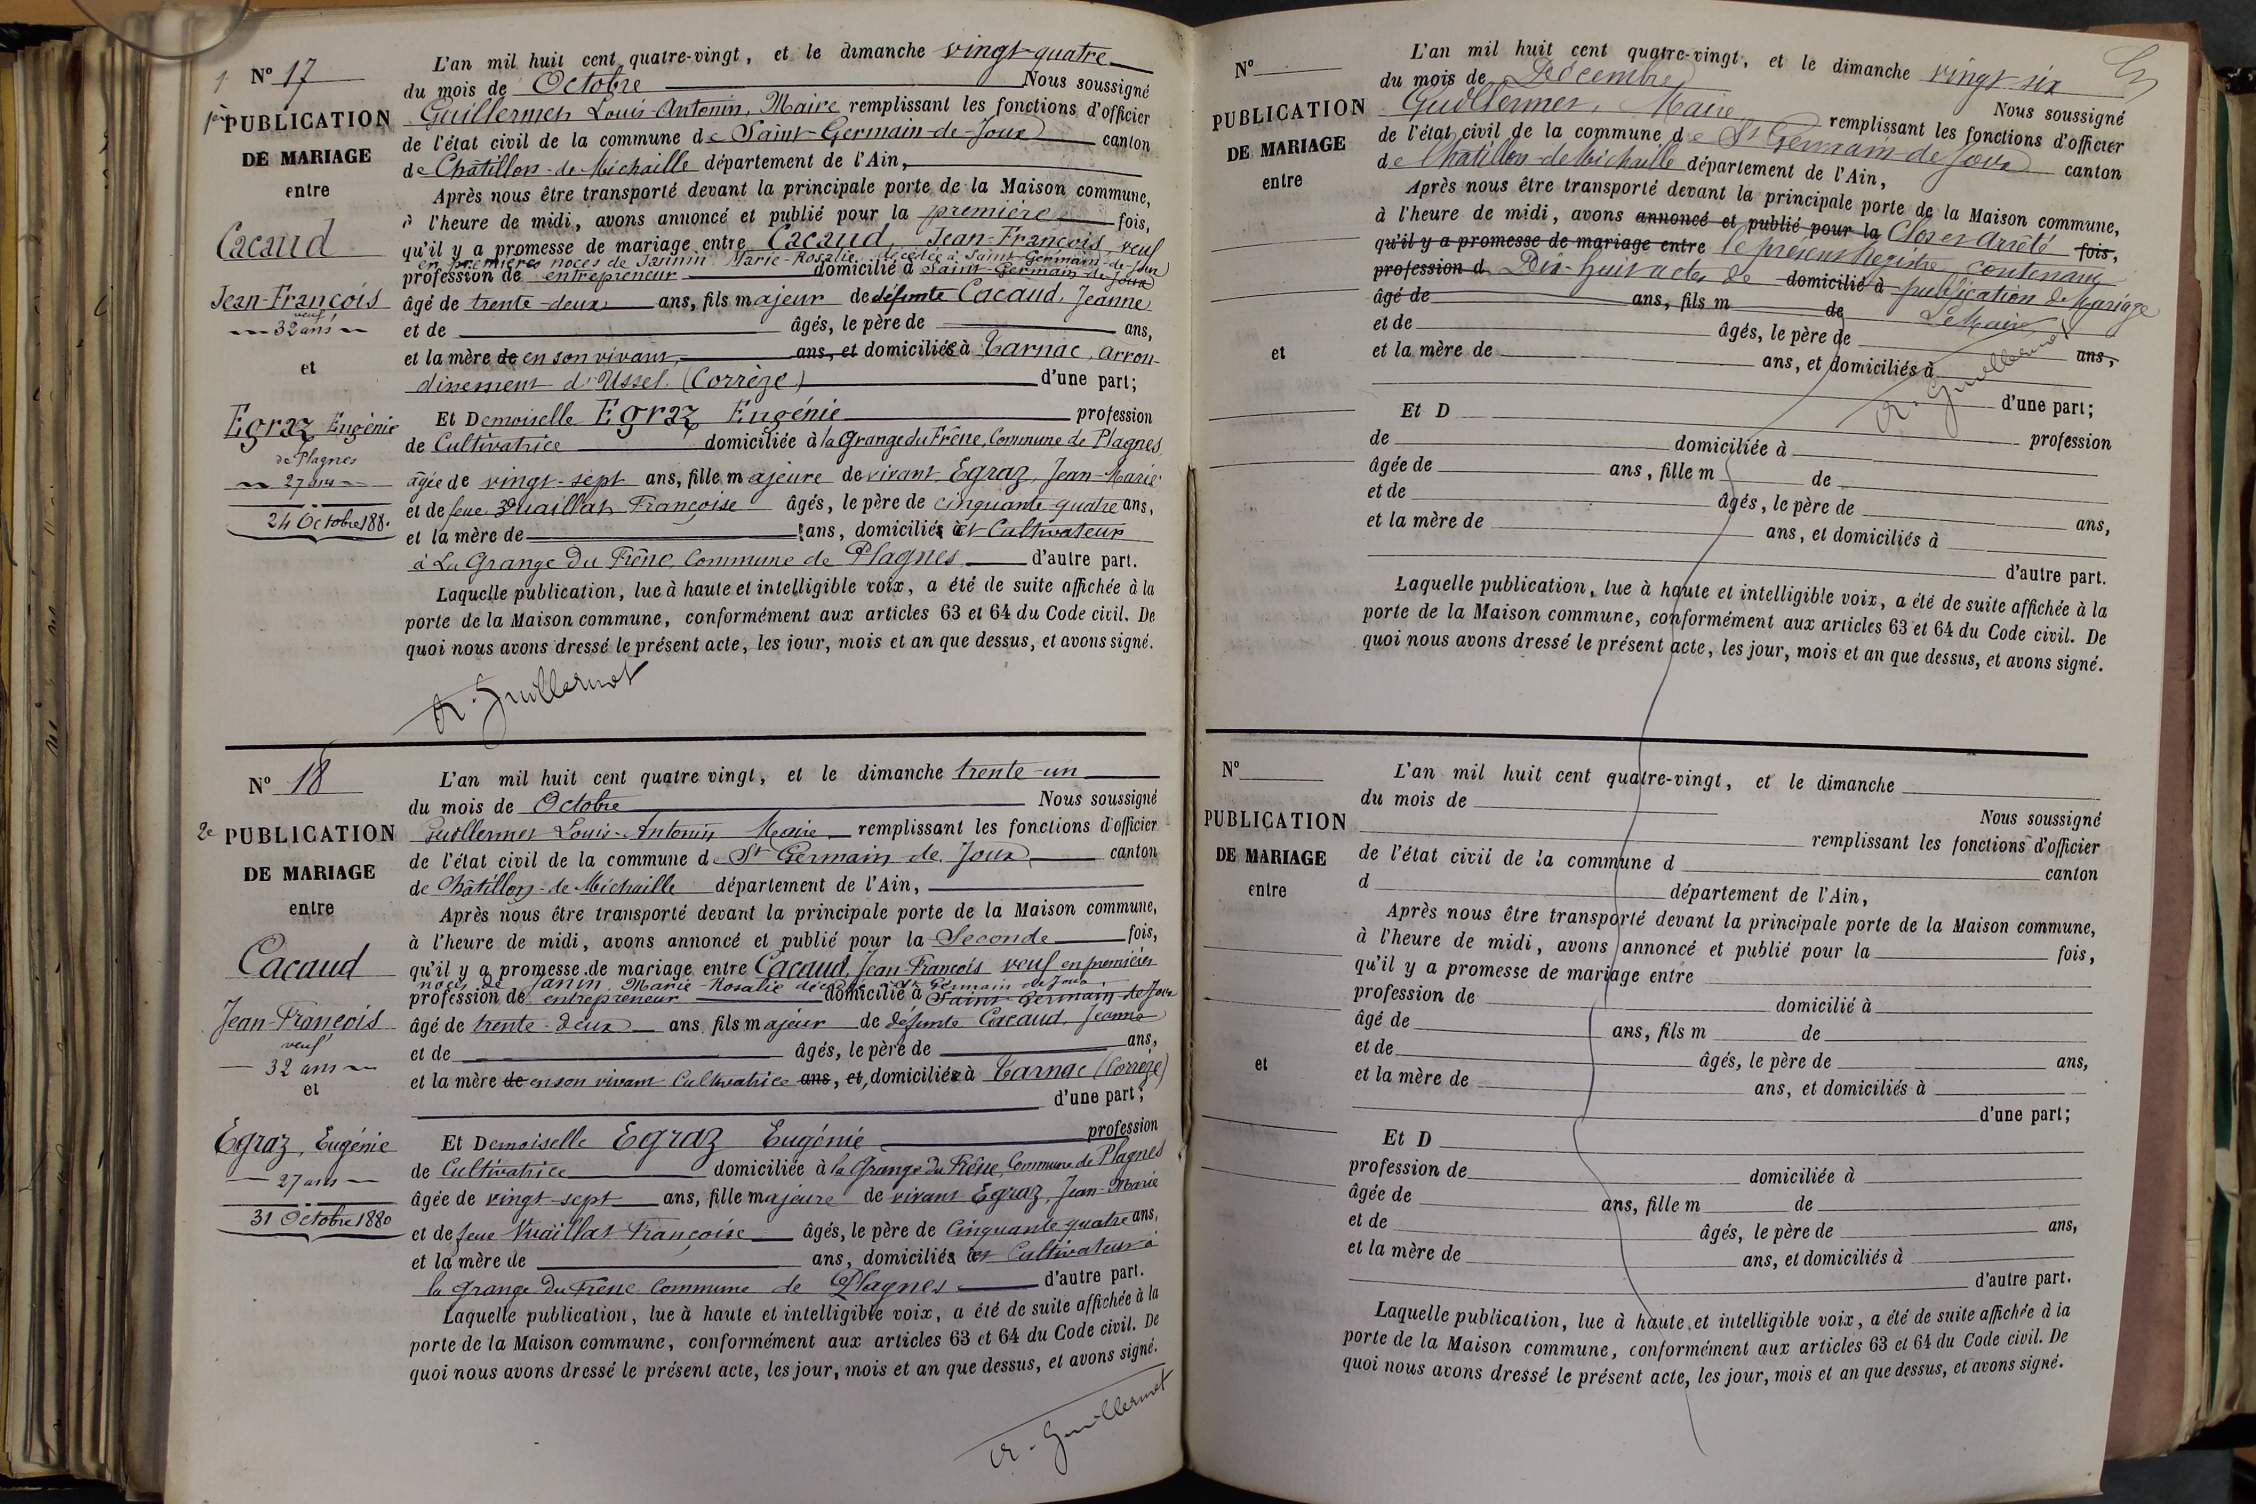 1
N° 17
1ère PUBLICATION
DE MARIAGE
entre
Cacaud
Jean-François
veuf
32 ans
et
Egraz Eugénie
de Plagnes
27 ans
24 Octobre 188.
L'an mil huit cent quatre-vingt, et le dimanche vingt-quatre
du mois de Octobre Nous soussigné
Guillermet Louis-Antonin, Maire remplissant les fonctions d'officier
de l'état civil de la commune de Saint-Germain-de-Joux canton
de Châtillon-de-Michaille département de l'Ain,
Après nous être transporté devant la principale porte de la Maison commune,
à l'heure de midi, avons annoncé et publié pour la première fois,
qu'il y a promesse de mariage entre Cacaud, Jean-François veuf
en premières noces de Jannin Marie-Rosalie, décédée à Saint-Germain-de-Joux
profession de entrepreneur domicilié à Saint-Germain de Joux
âgé de trente-deux ans, fils majeur de défunte Cacaud, Jeanne
et de âgés, le père de ans,
et la mère de en son vivant, ans, et domiciliée à Tarnac, arron-
dissement d'Ussel (Corrèze) d'une part;
Et Demoiselle Egraz Eugénie profession
de Cultivatrice domiciliée à la Grange du Frêne, Commune de Plagnes
âgée de vingt-sept ans, fille majeure de vivant Egraz, Jean-Marie
et de feue Vuaillat Françoise âgés, le père de cinquante-quatre ans,
et la mère de ans, domiciliés et Cultivateur
à La Grange du Frêne, Commune de Plagnes d'autre part.
Laquelle publication, lue à haute et intelligible voix, a été de suite affichée à la
porte de la Maison commune, conformément aux articles 63 et 64 du Code civil. De
quoi nous avons dressé le présent acte, les jour, mois et an que dessus, et avons signé.
A. Guillermet
N° 18
2e PUBLICATION
DE MARIAGE
entre
Cacaud
Jean-François
veuf
32 ans
et
Egraz, Eugénie
27 ans
31 Octobre 1880
L'an mil huit cent quatre vingt, et le dimanche trente-un
du mois de Octobre Nous soussigné
Guillermet Louis-Antonin Maire remplissant les fonctions d'officier
de l'état civil de la commune de St Germain-de-Joux canton
de Châtillon-de-Michaille département de l'Ain,
Après nous être transporté devant la principale porte de la Maison commune,
à l'heure de midi, avons annoncé et publié pour la Seconde fois,
qu'il y a promesse de mariage entre Cacaud, Jean-François veuf en premières
noces de Janin Marie-Rosalie décédée à St Germain de Joux
profession de entrepreneur domicilié à Saint-Germain de Joux
âgé de trente-deux ans fils majeur de défunte Cacaud, Jeanne
et de âgés, le père de ans,
et la mère de en son vivant Cultivatrice ans, et, domiciliée à Tarnac (Corrèze)
d'une part;
Et Demoiselle Egraz Eugénie profession
de Cultivatrice domiciliée à la Grange du Frêne, Commune de Plagnes
âgée de vingt-sept ans, fille majeure de vivant Egraz, Jean-Marie
et de feue Vuaillat Françoise âgés, le père de Cinquante quatre ans,
et la mère de ans, domiciliés et Cultivateur à
la Grange du Frêne Commune de Plagnes d'autre part.
Laquelle publication, lue à haute et intelligible voix, a été de suite affichée à la
porte de la Maison commune, conformément aux articles 63 et 64 du Code civil. De
quoi nous avons dressé le présent acte, les jour, mois et an que dessus, et avons signé.
A. Guillermet
N°
PUBLICATION
DE MARIAGE
entre
et
L'an mil huit cent quatre-vingt, et le dimanche vingt six
du mois de Décembre Nous soussigné
Guillermet, Maire remplissant les fonctions d'officier
de l'état civil de la commune de St Germain-de-Joux canton
de Châtillon-de-Michaille département de l'Ain,
Après nous être transporté devant la principale porte de la Maison commune,
à l'heure de midi, avons annoncé et publié pour la Clos et Arrêté fois,
qu'il y a promesse de mariage entre le présent Registre contenant
profession d Dix-huit actes de domicilié à publication de Mariage
âgé de ans, fils m de Le Maire
et de âgés, le père de ans,
et la mère de ans, et domiciliés à
A. Guillermet
d'une part;
Et D profession
de domiciliée à
âgée de ans, fille m de
et de âgés, le père de ans,
et la mère de ans, et domiciliés à
d'autre part.
Laquelle publication, lue à haute et intelligible voix, a été de suite affichée à la
porte de la Maison commune, conformément aux articles 63 et 64 du Code civil. De
quoi nous avons dressé le présent acte, les jour, mois et an que dessus, et avons signé.
N°
PUBLICATION
DE MARIAGE
entre
et
L'an mil huit cent quatre-vingt, et le dimanche
du mois de Nous soussigné
remplissant les fonctions d'officier
de l'état civil de la commune d canton
d département de l'Ain,
Après nous être transporté devant la principale porte de la Maison commune,
à l'heure de midi, avons annoncé et publié pour la fois,
qu'il y a promesse de mariage entre
profession de domicilié à
âgé de ans, fils m de
et de âgés, le père de ans,
et la mère de ans, et domiciliés à
d'une part;
Et D
profession de domiciliée à
âgée de ans, fille m de
et de âgés, le père de ans,
et la mère de ans, et domiciliés à
d'autre part.
Laquelle publication, lue à haute et intelligible voix, a été de suite affichée à la
porte de la Maison commune, conformément aux articles 63 et 64 du Code civil. De
quoi nous avons dressé le présent acte, les jour, mois et an que dessus, et avons signé.